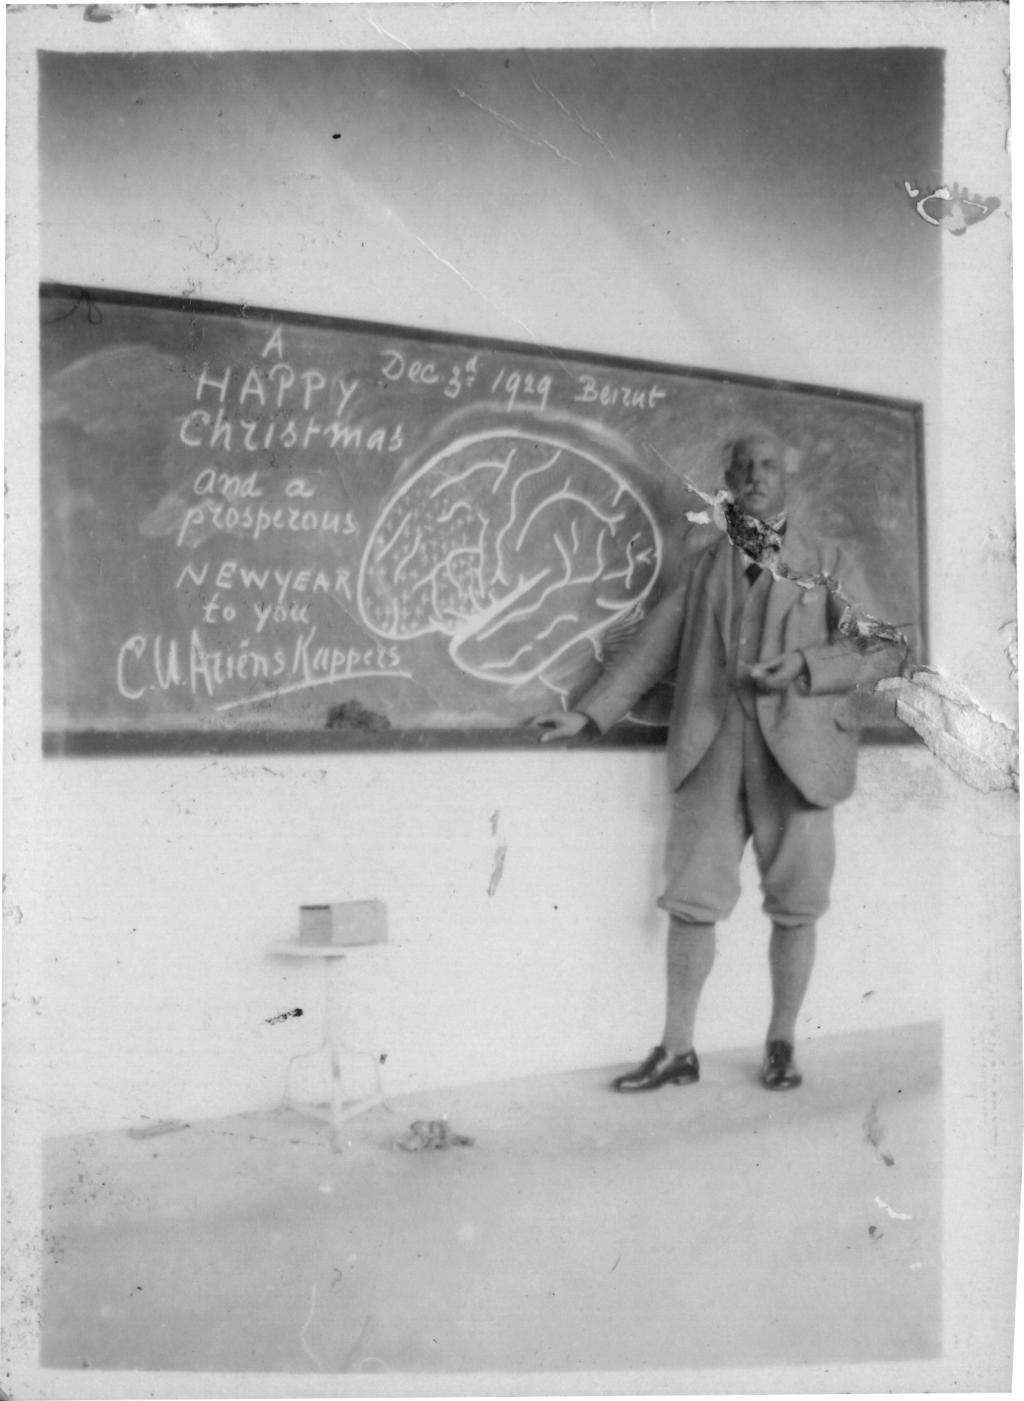 A
HAPPY
Christmas
and a
prosperous
NEWYEAR
to you
C.U. Ariëns Kappers
Dec. 3d 1929 Beirut